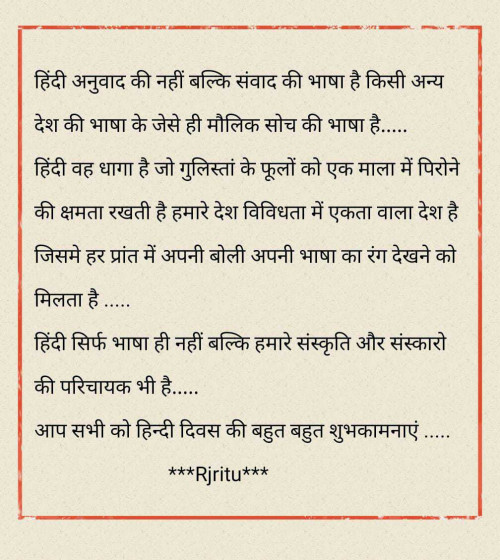 हिंदी अनुवाद की नहीं बल्कि संवाद की भाषा है किसी अन्य
देश की भाषा के जेसे ही मौलिक सोच की भाषा है.....
हिंदी वह धागा है जो गुलिस्तां के फूलों को एक माला में पिरोने
की क्षमता रखती है हमारे देश विविधता में एकता वाला देश है
जिसमे हर प्रांत में अपनी बोली अपनी भाषा का रंग देखने को
मिलता है .....
हिंदी सिर्फ भाषा ही नहीं बल्कि हमारे संस्कृति और संस्कारो
की परिचायक भी है.....
आप सभी को हिन्दी दिवस की बहुत बहुत शुभकामनाएं .....
***Rjritu***